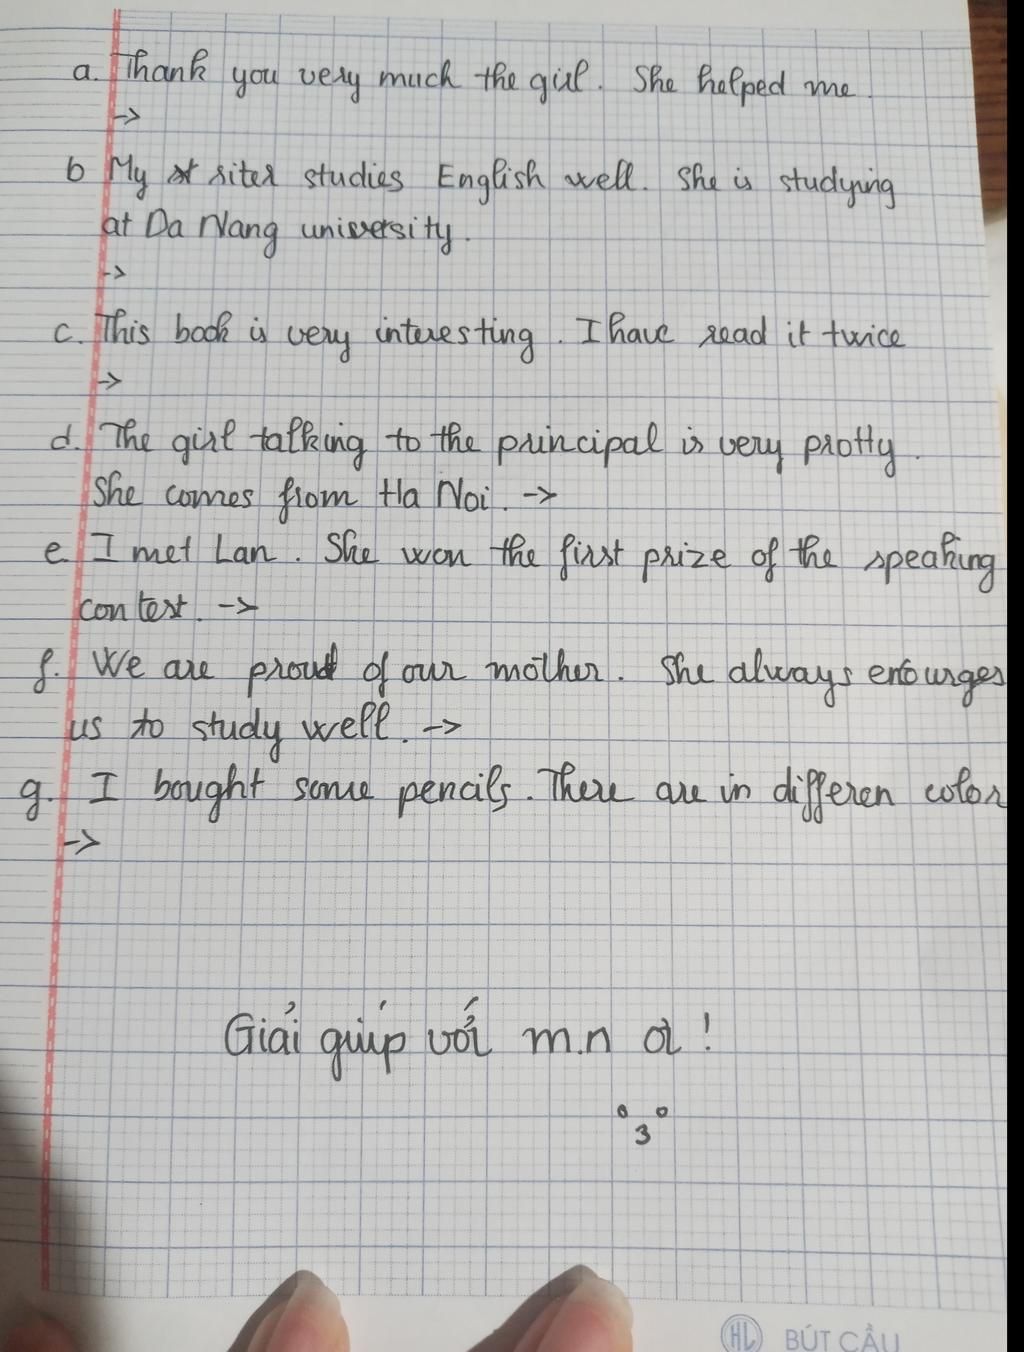 a. Thank you very much the girl. She helped me.
->
b My siter studies English well. She is studying
at Da Nang university.
->
c. This book is very interesting. I have read it twice
->
d. The girl talking to the principal is very protty.
She comes from Ha Noi. ->
e I met Lan. She won the first prize of the speaking
contest. ->
f. We are proud of our mother. She always enourges
us to study well. ->
g. I bought some pencils. There are in differen color
->
Giải giúp với m.n ơi!
HL BÚT CẦU